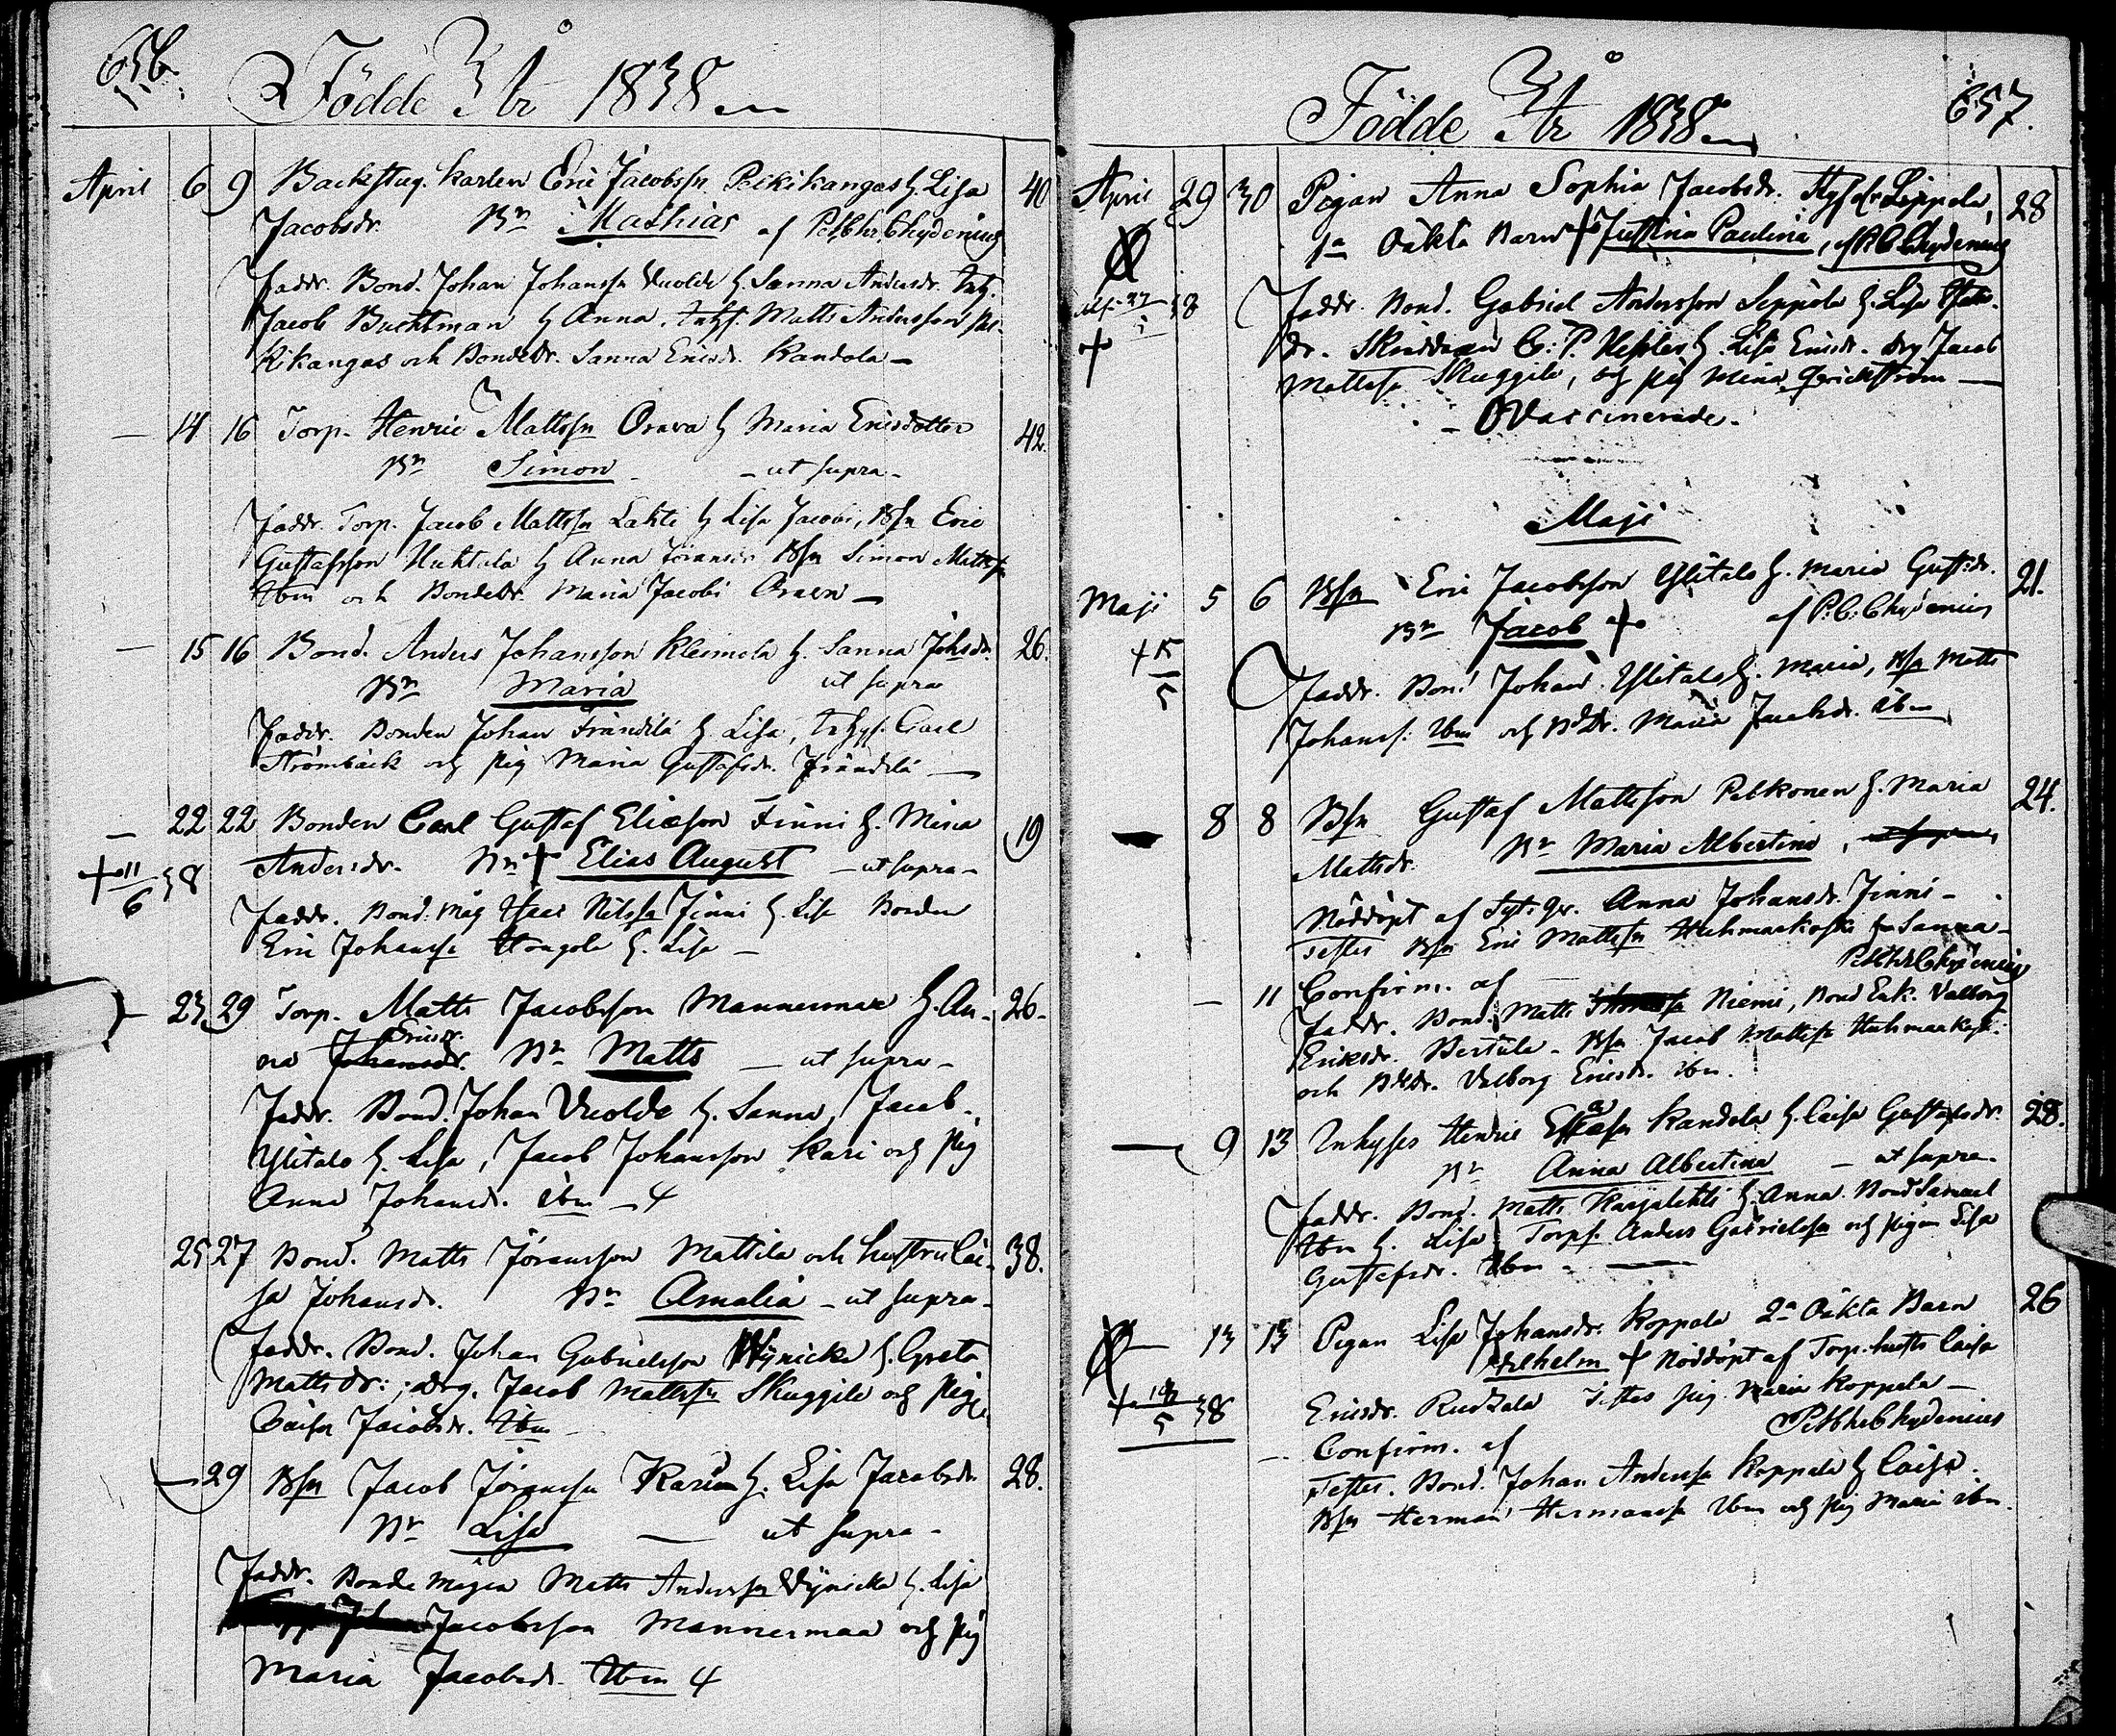 656.
Födde År 1838
April 6 9 Backstug. karlen Eric Jacobsson Peikikangas h. Lisa 40
Jacobsdr. Bn Mathias af PetChrChydenius
Faddr. Bond. Johan Johanssn Vuolde h. Sanna Andersdr. Inh.
Jacob Buchtman h Anna. Inhs. Matts Andersson
kikangas och Bondedr. Sanna Ericsdr. Kandola —
— 14 16 Torp. Henric Mattssn Orava h Maria Ericsdotter 42.
Bn Simon — ut supra —
Faddr. Torp. Jacob Mattssn Lahti h Lisa Jacobs, Bsn Eric
Gustafsson Huhtala h Anna Bsn Simon Mattss
Ibm och Bondedr. Maria Jacobs Orava —
— 15 16 Bond. Anders Johansson Kleimola h. Sanna Johsdr. 26.
Bn Maria ut supra
Faddr. Bonden Johan Frändilä h Lisa, Inhys. Carl
Strömbäck och pig Maria Gustafsdr. Frändilä —
— 22 22 Bonden Carl Gustaf Eliasson Finni h. Maria 19
+ 11/6 38 Andersdr. Bn + Elias August — ut supra —
Faddr. Bond. måg Isaac Nilssn Finni h. Lisa Bonden
Eric Johanss Hongola h. Lisa —
23 29 Torp. Matts Jacobsson Mannermaa h. An- 26.
Ericsdr.
na Johansdr. Bn Matts — ut supra —
Faddr. Bond. Johan Vuolde h. Sanna, Jacob
Ylitalo h. Lisa, Jacob Johansson Kari och pig
Anna Johansdr. ibm — 4
25 27 Bond. Matts Joransson Mattila och hustru Cai- 38.
sa Johansdr. Bn Amalia — ut supra —
Faddr. Bond. Johan Gabrielsson Wynicka h. Greta
Mattsdr: ; drg. Jacob Mattssn Skuggila och pig
Caisa Jacobsdr. Ibm
29 Bsn Jacob Joranssn h. Lisa Jacobsdr. 28.
Bn Lisa — ut supra —
Faddr. Bonde mågen Matts Anderssn Wynicka h. Lisa
Jacobsson Mannermaa och pig
Maria Jacobsdr. Ibm 4
657.
Födde År 1838
April 29 30 Pigan Anna Sophia Jacobsdr. Seppala, 28
1a Oäkta Barn + Justina Paulina, af PC Chydenius
Faddr. Bond. Gabriel Andersson Seppola h. Lisa
dr. Skräddaren C: P. h. Lisa Ericsdr. drg Jacob
+ Mattssn Skuggila, och pig Mina
— OVaccinerade.
Maji
Maji 5 6 Bsn Eric Jacobsson Ylitalo h. Maria Gustsdr. 21.
+ 15/5 Bn Jacob + af P.C. Chydenius
Faddr. Bond Johan Ylitalo h. Maria, Bsn Matts
Johanss: Ibm och BdDr. Maria Jacobsdr. ibm
— 8 8 Bsn Gustaf Mattsson Pelkonen h. Maria 24.
Mattsdr. Bn Maria Albertina,
Nöddöpt af Anna Johansdr. Finni —
Testes Bsn Eric Mattssn Huhmarkoski Sanna —
PetChrChydenius
— 11 Confirm. af
Faddr. Bond. Matts Niemi, Bond Enk. Valborg
Eriksdr. Bertula — Bsn Jacob Mattssn Huhmarkosk:
och BdDr. Valborg Ericsdr. ibm.
— 9 13 Inhyses Henric Kandola h. Caisa Gustafsdr. 28.
Bn Anna Albertina — ut supra —
Faddr. Bond. Matts Karjalahti h. Anna. Bond Samuel
Ibm h. Lisa Torps. Anders Gabrielssn och pigan Lisa
Gustafsdr. Ibm — —
— 13 13 Pigan Lisa Johansdr. Koppala 2a Oäkta Barn 26
Wilhelm + Nöddöpt af Torp. hustr Caisa
+ 5 38 Ericsdr. Testes pig. Maria Koppala —
PetChrChydenius
— Confirm. af
Testes. Bond. Johan Anderssn Koppala h Caisa.
Bsn Herman Hermanss Ibm och pig Maria ibm.